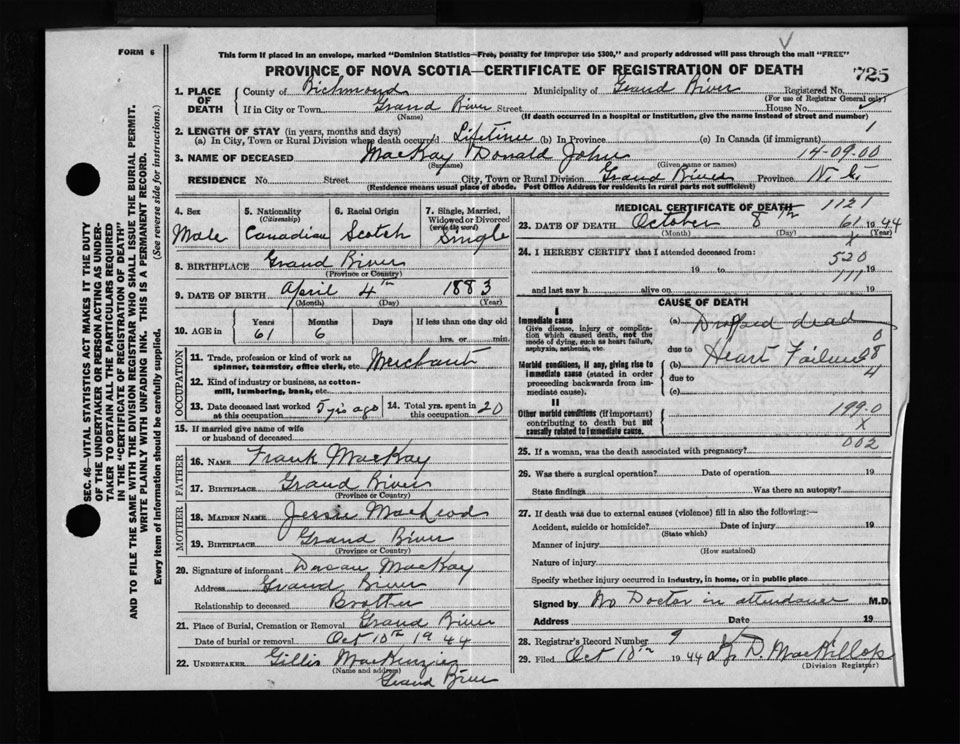 FORM 6
This form if placed in an envelope, marked "Dominion Statistics—Free, penalty for improper use $300," and properly addressed will pass through the mail "FREE"
PROVINCE OF NOVA SCOTIA—CERTIFICATE OF REGISTRATION OF DEATH
725
1. PLACE OF DEATH
County of Richmond Municipality of Grand River Registered No.
(For use of Registrar General only)
If in City or Town Grand River Street House No.
(Name) (If death occurred in a hospital or institution, give the name instead of street and number)
2. LENGTH OF STAY (in years, months and days)
(a) In City, Town or Rural Division where death occurred Lifetime (b) In Province (c) In Canada (if immigrant) 1
3. NAME OF DECEASED MacKay Donald John 14-09.00
(Surname) (Given name or names)
RESIDENCE No. Street City, Town or Rural Division Grand River Province N. S.
(Residence means usual place of abode. Post Office Address for residents in rural parts not sufficient)
4. Sex
Male
5. Nationality
(Citizenship)
Canadian
6. Racial Origin
Scotch
7. Single, Married, Widowed or Divorced
(write the word)
Single
8. BIRTHPLACE Grand River
(Province or Country)
9. DATE OF BIRTH April 4th 1883
(Month) (Day) (Year)
10. AGE in
Years Months Days If less than one day old
61 6 hrs. or min.
OCCUPATION
11. Trade, profession or kind of work as spinner, teamster, office clerk, etc. Merchant
12. Kind of industry or business, as cotton-mill, lumbering, bank, etc.
13. Date deceased last worked at this occupation 5 yrs ago
14. Total yrs. spent in this occupation 20
15. If married give name of wife or husband of deceased
FATHER
16. NAME Frank MacKay
17. BIRTHPLACE Grand River
(Province or Country)
MOTHER
18. MAIDEN NAME Jessie MacLeod
19. BIRTHPLACE Grand River
(Province or Country)
20. Signature of informant MacKay
Address Grand River
Relationship to deceased Brother
21. Place of Burial, Cremation or Removal Grand River
Date of burial or removal Oct 10th 1944
22. UNDERTAKER Gillis MacKenzie
(Name and address)
Grand River
MEDICAL CERTIFICATE OF DEATH 1121
23. DATE OF DEATH October 8th 61 1944
(Month) (Day) (Year)
x
24. I HEREBY CERTIFY that I attended deceased from:
520
19 to 19
111
and last saw h alive on 19
CAUSE OF DEATH
I
Immediate cause
Give disease, injury or complication which caused death, not the mode of dying, such as heart failure, asphyxia, asthenia, etc.
(a) Dropped dead
0
due to
Morbid conditions, if any, giving rise to immediate cause (stated in order proceeding backwards from immediate cause).
(b) Heart Failure 8
due to 4
(c)
II
Other morbid conditions (if important) contributing to death but not causally related to immediate cause.
199.0
x
002
25. If a woman, was the death associated with pregnancy?
26. Was there a surgical operation? Date of operation 19
State findings Was there an autopsy?
27. If death was due to external causes (violence) fill in also the following:—
Accident, suicide or homicide? Date of injury 19
(State which)
Manner of injury
(How sustained)
Nature of injury
Specify whether injury occurred in industry, in home, or in public place
Signed by No Doctor in attendance M.D.
Address Date 19
28. Registrar's Record Number 9
29. Filed Oct 10th 1944 D. MacKillop
(Division Registrar)
SEC. 46—VITAL STATISTICS ACT MAKES IT THE DUTY
OF THE UNDERTAKER OR PERSON ACTING AS UNDER-
TAKER TO OBTAIN ALL THE PARTICULARS REQUIRED
IN THE "CERTIFICATE OF REGISTRATION OF DEATH"
AND TO FILE THE SAME WITH THE DIVISION REGISTRAR WHO SHALL ISSUE THE BURIAL PERMIT.
WRITE PLAINLY WITH UNFADING INK. THIS IS A PERMANENT RECORD.
Every item of information should be carefully supplied. (See reverse side for instructions.)